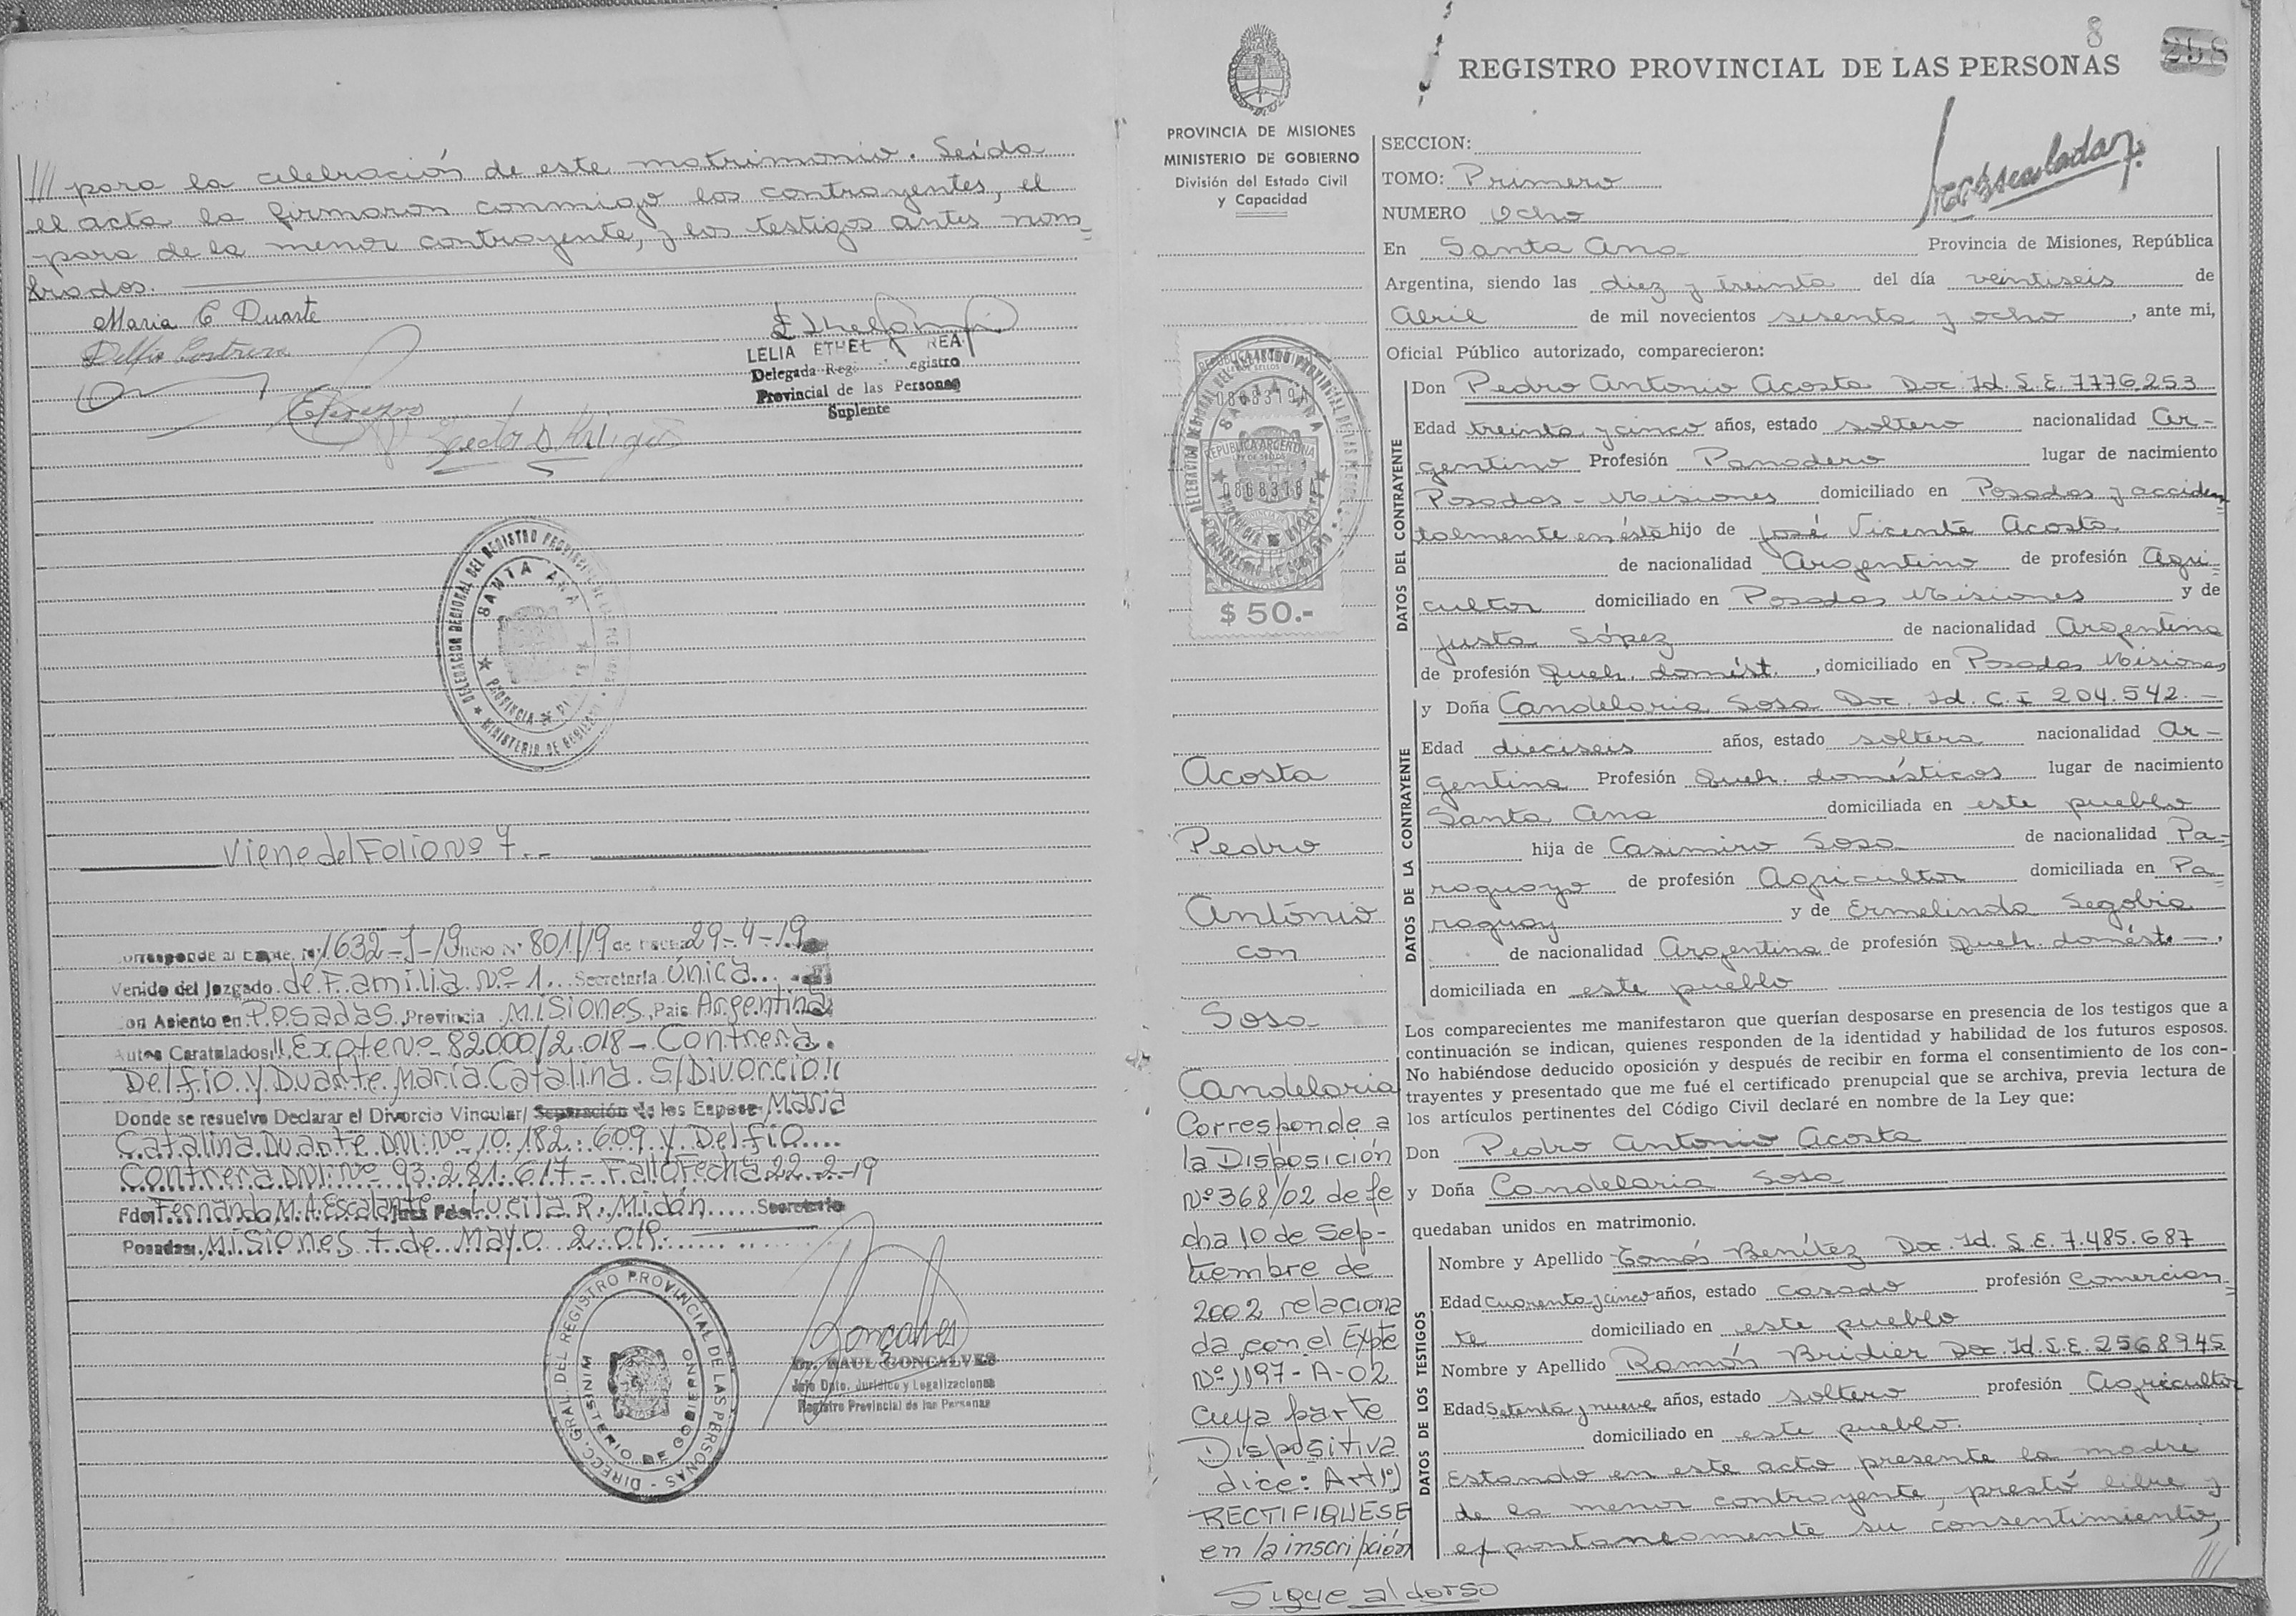 /// para la celebración de este matrimonio. Leída
el acta la firmaron conmigo los contrayentes, el
para de la menor contrayente, y los testigos antes nom=
brados.
Maria C Duarte
Delfio Contrera
LELIA ETHEL REA
Delegada Reg egistro
Provincial de las Personas
Suplente
DELEGACION REGIONAL DEL REGISTRO PROVINCIAL DE LAS PERSONAS
SANTA ANA
PROVINCIA DE MISIONES
MINISTERIO DE GOBIERNO
Viene del Folio Nº 7.-
Corresponde al Expte. Nº 1632-J-19 Oficio Nº 801/19 de Fecha 29-4-19
Venido del Juzgado de Familia Nº 1... Secretaría Única...
Con Asiento en Posadas, Provincia Misiones, Pais Argentina
Autos Caratulados: "Expte Nº 82000/2.018 - Contrera.
Delfio y Duarte María Catalina S/Divorcio"
Donde se resuelve Declarar el Divorcio Vincular/ Separación de los Esposos María
Catalina Duarte DNI Nº 10.182.609 y Delfio....
Contrera DNI Nº 93.281.617 - Fallo Fecha 22-2-19
Fdo. Fernando M.A. Escalante Juez Fdo. Lucila R. Midón..... Secretario
Posadas, Misiones 7 de Mayo 2.019.
DIRECC. GRAL. DEL REGISTRO PROVINCIAL DE LAS PERSONAS
MINISTERIO DE GOBIERNO
Dr. RAUL GONCALVES
Jefe Dpto. Jurídico y Legalizaciones
Registro Provincial de las Personas
8
298
REGISTRO PROVINCIAL DE LAS PERSONAS
PROVINCIA DE MISIONES
MINISTERIO DE GOBIERNO
División del Estado Civil
y Capacidad
REPUBLICA ARGENTINA
0868318A
$ 50.-
Acosta
Pedro
Antonio
con
Sosa
Candelaria
Corresponde a
la Disposición
Nº 368/02 de fe
cha 10 de Sep-
tiembre de
2002 relaciona
da con el Expte
Nº 1197-A-02
cuya parte
Dispositiva
dice: Art 1º)
RECTIFIQUESE
en la inscripción
Sigue al dorso
SECCION:
TOMO: Primero
NUMERO Ocho
En Santa Ana Provincia de Misiones, República
Argentina, siendo las diez y treinta del día veintiseis de
Abril de mil novecientos sesenta y ocho, ante mi,
Oficial Público autorizado, comparecieron:
DATOS DEL CONTRAYENTE
Don Pedro Antonio Acosta Doc. Id. L.E. 7776.253
Edad treinta y cinco años, estado soltero nacionalidad Ar-
gentino Profesión Panadero lugar de nacimiento
Posadas - Misiones domiciliado en Posadas y acciden=
talmente en ésta hijo de José Vicente Acosta
de nacionalidad Argentino de profesión Agri=
cultor domiciliado en Posadas Misiones y de
Justa López de nacionalidad Argentina
de profesión Queh. domést., domiciliado en Posadas Misiones
DATOS DE LA CONTRAYENTE
y Doña Candelaria Sosa Doc. Id. C.I 204.542.-
Edad dieciseis años, estado soltera nacionalidad Ar-
gentina Profesión Queh. domésticos lugar de nacimiento
Santa Ana domiciliada en este pueblo
hija de Casimiro Sosa de nacionalidad Pa=
raguayo de profesión Agricultor domiciliada en Pa=
raguay y de Ermelinda Segobia
de nacionalidad Argentina de profesión Queh. domést.-,
domiciliada en este pueblo
Los comparecientes me manifestaron que querían desposarse en presencia de los testigos que a
continuación se indican, quienes responden de la identidad y habilidad de los futuros esposos.
No habiéndose deducido oposición y después de recibir en forma el consentimiento de los con-
trayentes y presentado que me fué el certificado prenupcial que se archiva, previa lectura de
los artículos pertinentes del Código Civil declaré en nombre de la Ley que:
Don Pedro Antonio Acosta
y Doña Candelaria Sosa
quedaban unidos en matrimonio.
DATOS DE LOS TESTIGOS
Nombre y Apellido Tomás Benítez Doc. Id. L.E. 7.485.687
Edad cuarenta y cinco años, estado casado profesión Comercian=
te domiciliado en este pueblo
Nombre y Apellido Ramón Bridier Doc. Id. L.E. 2568945
Edad setenta y nueve años, estado soltero profesión Agricultor
domiciliado en este pueblo.
Estando en este acto presente la madre
de la menor contrayente, prestó libre y
expontaneamente su consentimiento,
///